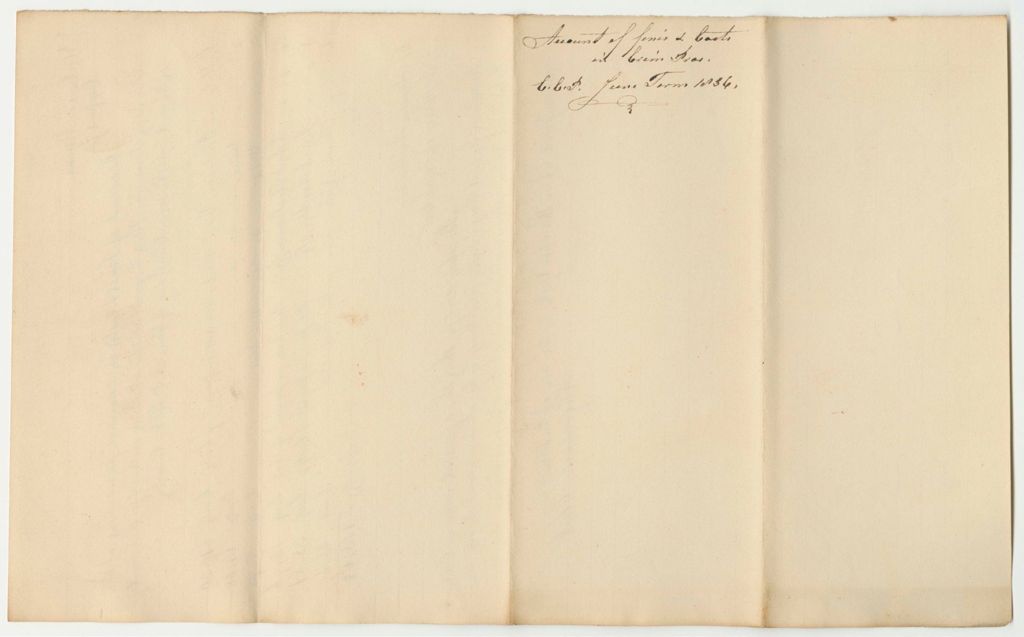 Amount of fines & Costs
in Crim Pros.
C.C.P. June Term 1836.